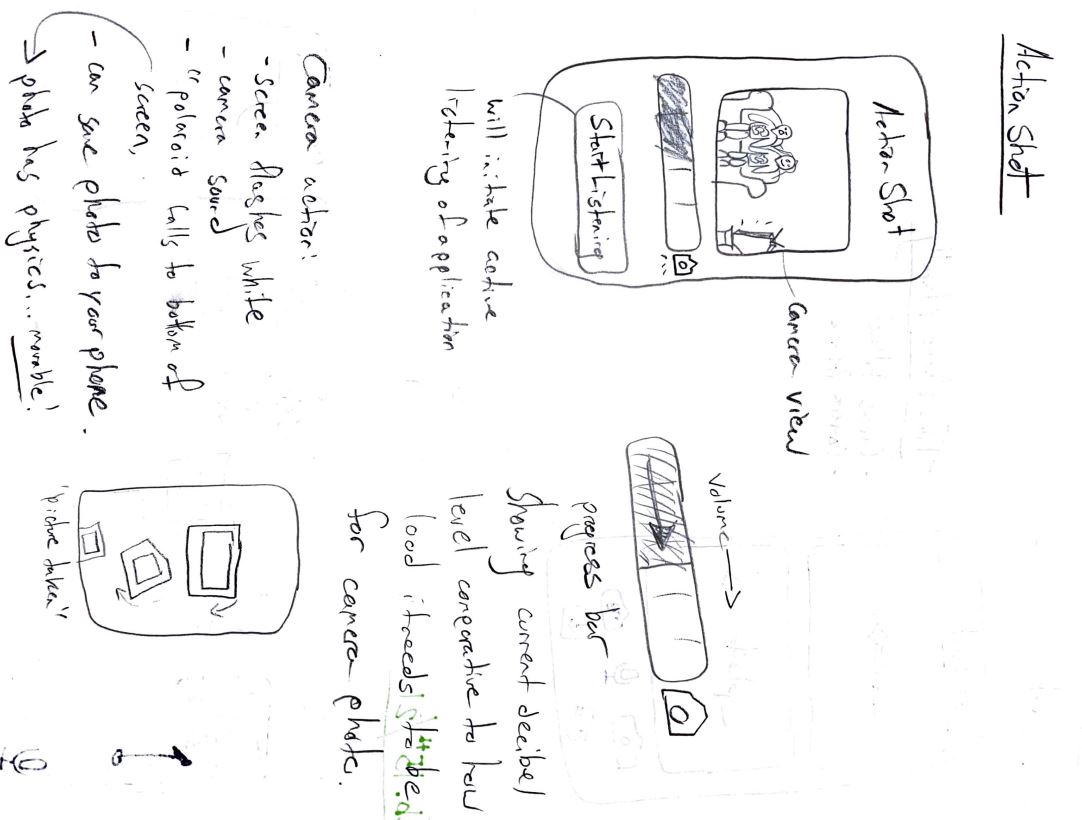 Action Shot
Action Shot
Camera view
Start Listening
will initiate active
listening of application
Volume
progress bar
Showing current decibel
level comparative to how
loud it needs to be
for camera photo.
Camera action:
- screen flashes white
- camera sound
- "polaroid falls to bottom of
screen,
- can save photo to your phone.
photo has physics... movable!
"picture taken"